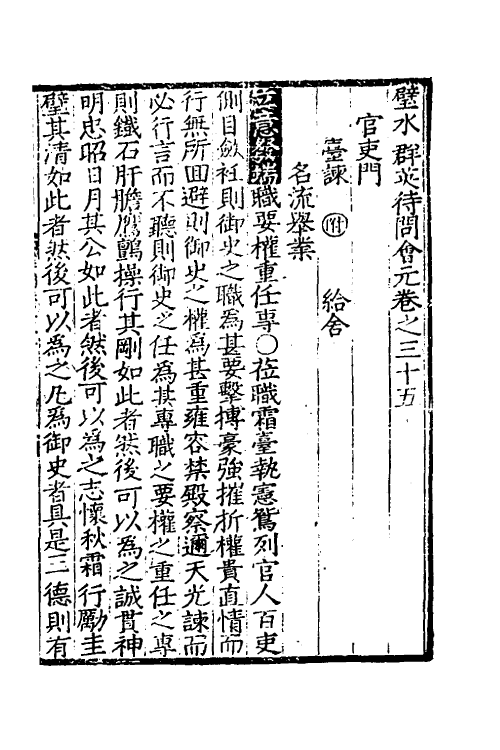 璧水群英待問會元卷之三十五
官吏門
臺諫 附 給舍
名流舉業
立意發端職要權重任專○莅職霜臺執憲鵞列官人百吏
側目斂衽則御史之職為甚要擊摶豪強摧折權貴直情而
行無所回避則御史之權為甚重雍容禁殿察邇天光諫而
必行言而不聽則御史之任為甚專職之要權之重任之專
則鐵石肝膽鷹鸇操行其剛如此者然後可以為之誠貫神
明忠昭日月其公如此者然後可以為之志懷秋霜行勵圭
璧其清如此者然後可以為之凡為御史者具是二德則有